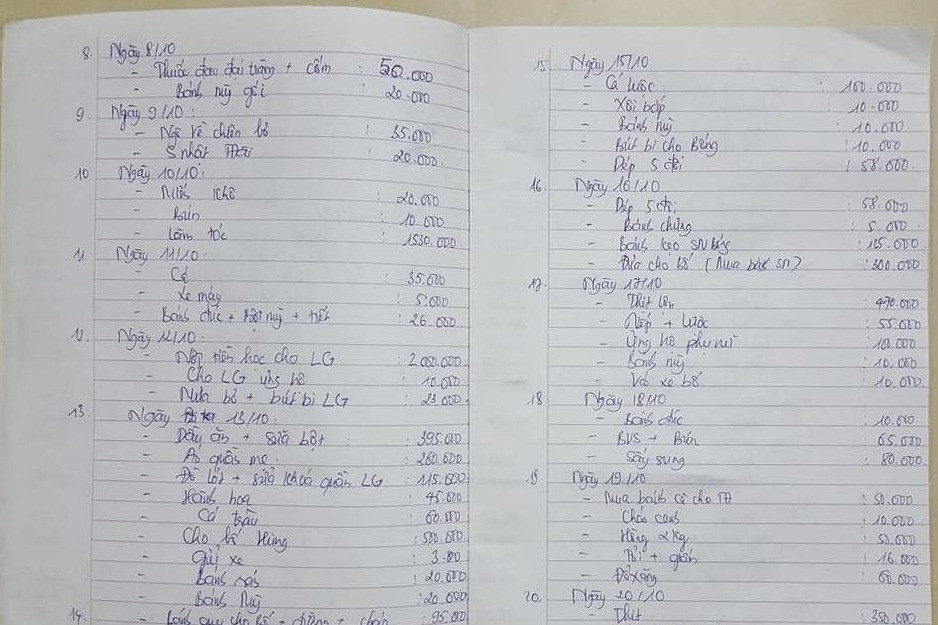 8. Ngày 8/10
- Thuốc đau đại tràng + cốm : 50.000
- Bánh mỳ gối : 20.000
9. Ngày 9/10 :
- chiên bơ : 35.000
- S nhật : 20.000
10 Ngày 10/10 :
- Miến khô : 20.000
- Bún : 10.000
- Làm tóc : 1530.000
11. Ngày 11/10 :
- Cá : 35.000
- Xe máy : 5.000
- Bánh đúc + mỳ + tiết : 26.000
12. Ngày 12/10 :
- Nộp tiền học cho LG : 2000.000
- Cho LG ủng hộ : 10.000
- Mua bơ + bút bi LG : 23.000
13. Ngày 13/10 :
- Dầu ăn + sữa bột : 395.000
- Áo quần mẹ : 260.000
- Đồ lót + sửa khoá quần LG : 115.000
- hoa : 45.000
- Cá trầu : 60.000
- Cho bố Hùng : 500.000
- Gửi xe : 3.000
- Bánh : 20.000
- Bánh Mỳ : 20.000
14. - Bánh quy cho + + 95.000
15 Ngày 15/10
- Cá luộc : 100.000
- Xôi bắp : 10.000
- Bánh mỳ : 10.000
- Bút bi cho Bống : 10.000
- Dép 5 đôi : 58.000
16. Ngày 16/10
- Dép 5 đôi : 58.000
- Bánh chưng : 5.000
- Bánh kẹo SN Bống : 125.000
- Đưa cho bố (Mua bánh SN) : 300.000
17. Ngày 17/10
- Thịt lợn : 470.000
- Nếp + lước : 55.000
- Ủng hộ phụ nữ : 100.000
- Bánh mỳ : 10.000
- Vá xe bố : 10.000
18 Ngày 18/10
- Bánh đúc : 10.000
- BVS + Bún : 65.000
- Sấy sung : 80.000
19 Ngày 19/10
- Mua bánh cho : 50.000
- Cháo canh : 10.000
- Hồng 2kg : 50.000
- + : 16.000
- Đổ xăng : 60.000
20. Ngày 20/10
- Thịt : 350.000